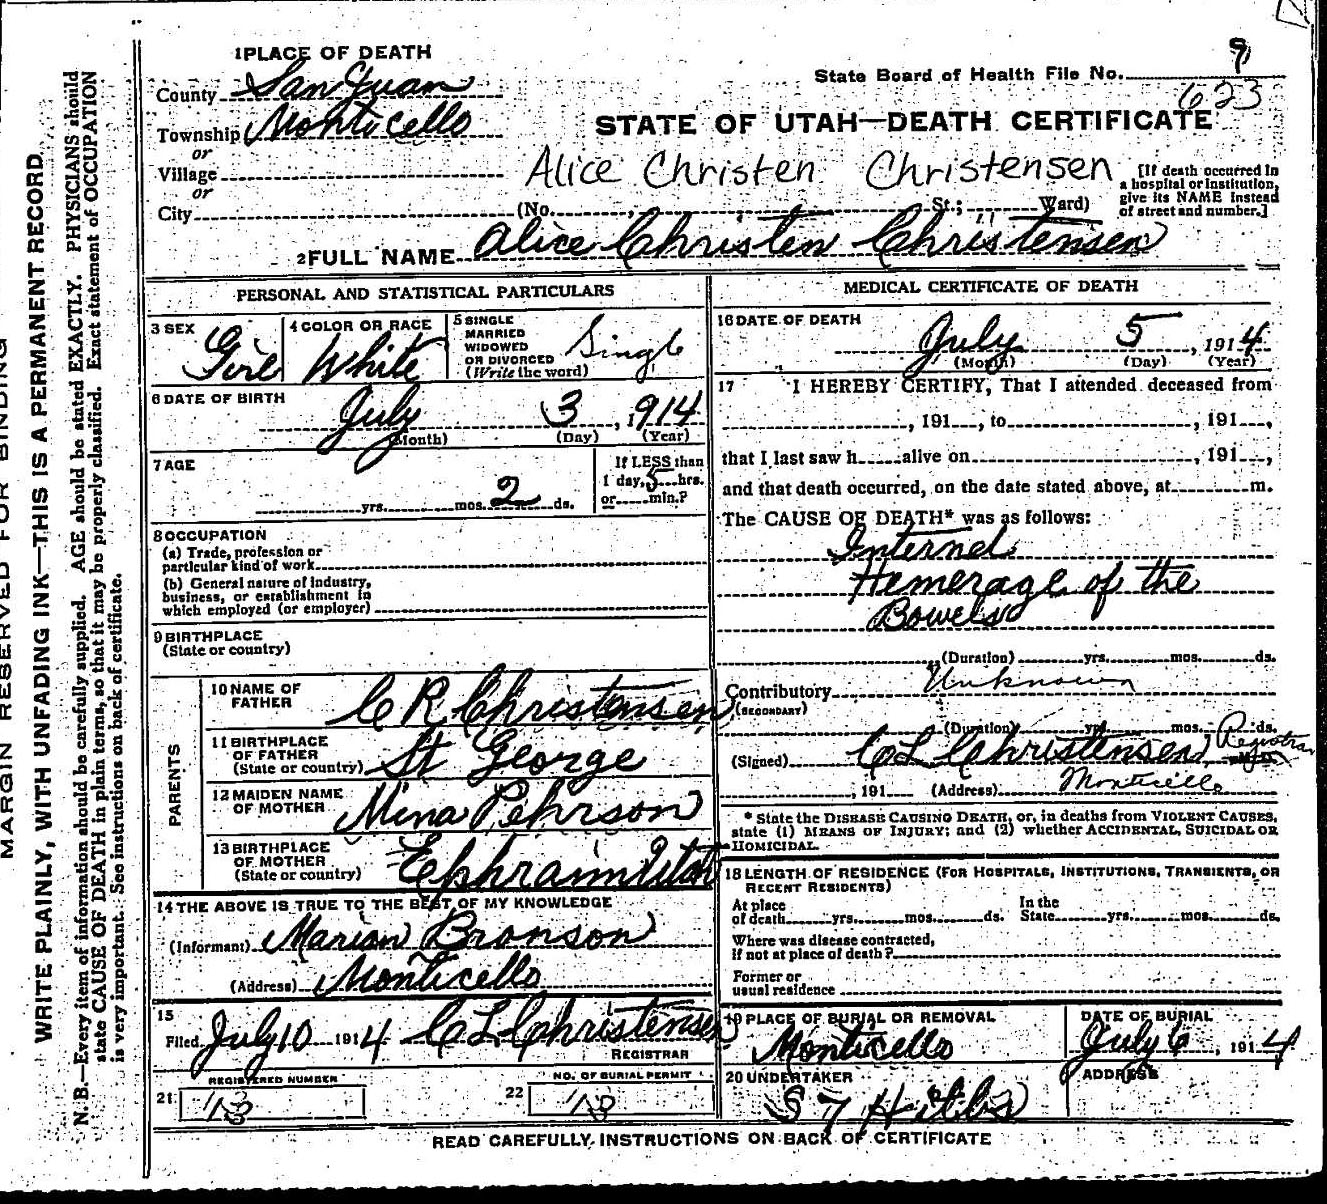 MARGIN RESERVED FOR BINDING
WRITE PLAINLY, WITH UNFADING INK—THIS IS A PERMANENT RECORD
N. B.—Every item of information should be carefully supplied. AGE should be stated EXACTLY. PHYSICIANS should
state CAUSE OF DEATH in plain terms, so that it may be properly classified. Exact statement of OCCUPATION
is very important. See instructions on back of certificate.
1 PLACE OF DEATH
County San Juan
Township Monticello
or
Village
or
City
(No. St.; Ward)
State Board of Health File No. 9
623
STATE OF UTAH—DEATH CERTIFICATE
Alice Christen Christensen
[If death occurred in
a hospital or institution,
give its NAME instead
of street and number.]
2 FULL NAME Alice Christen Christensen
PERSONAL AND STATISTICAL PARTICULARS
3 SEX Girl
4 COLOR OR RACE White
5 SINGLE
MARRIED
WIDOWED
OR DIVORCED
(Write the word)
Singl
6 DATE OF BIRTH
July 3, 1914
(Month) (Day) (Year)
7 AGE
yrs. mos. 2 ds.
If LESS than
1 day, 5 hrs.
or min.?
8 OCCUPATION
(a) Trade, profession or
particular kind of work
(b) General nature of industry,
business, or establishment in
which employed (or employer)
9 BIRTHPLACE
(State or country)
PARENTS
10 NAME OF
FATHER
C R Christensen
11 BIRTHPLACE
OF FATHER
(State or country)
St George
12 MAIDEN NAME
OF MOTHER
Mina Pehrson
13 BIRTHPLACE
OF MOTHER
(State or country)
Ephraim Utah
14 THE ABOVE IS TRUE TO THE BEST OF MY KNOWLEDGE
(Informant) Marion Bronson
(Address) Monticello
15
Filed July 10 1914 C L Christensen
REGISTRAR
REGISTERED NUMBER
21
NO. OF BURIAL PERMIT
22
MEDICAL CERTIFICATE OF DEATH
16 DATE OF DEATH
July 5, 1914
(Month) (Day) (Year)
17 I HEREBY CERTIFY, That I attended deceased from
, 191 , to , 191 ,
that I last saw h alive on , 191 ,
and that death occurred, on the date stated above, at m.
The CAUSE OF DEATH* was as follows:
Internel
Hemerage of the
Bowels
(Duration) yrs. mos. ds.
Contributory Unknown
(SECONDARY)
(Duration) yrs. mos. ds.
(Signed) C L Christensen Registrar
, 191 (Address) Monticello
* State the DISEASE CAUSING DEATH, or, in deaths from VIOLENT CAUSES,
state (1) MEANS OF INJURY; and (2) whether ACCIDENTAL, SUICIDAL OR
HOMICIDAL.
18 LENGTH OF RESIDENCE (FOR HOSPITALS, INSTITUTIONS, TRANSIENTS, OR
RECENT RESIDENTS)
At place
of death yrs. mos. ds.
In the
State yrs. mos. ds.
Where was disease contracted,
If not at place of death?
Former or
usual residence
19 PLACE OF BURIAL OR REMOVAL
Monticello
DATE OF BURIAL
July 6, 1914
20 UNDERTAKER
Hibbs
ADDRESS
READ CAREFULLY INSTRUCTIONS ON BACK OF CERTIFICATE